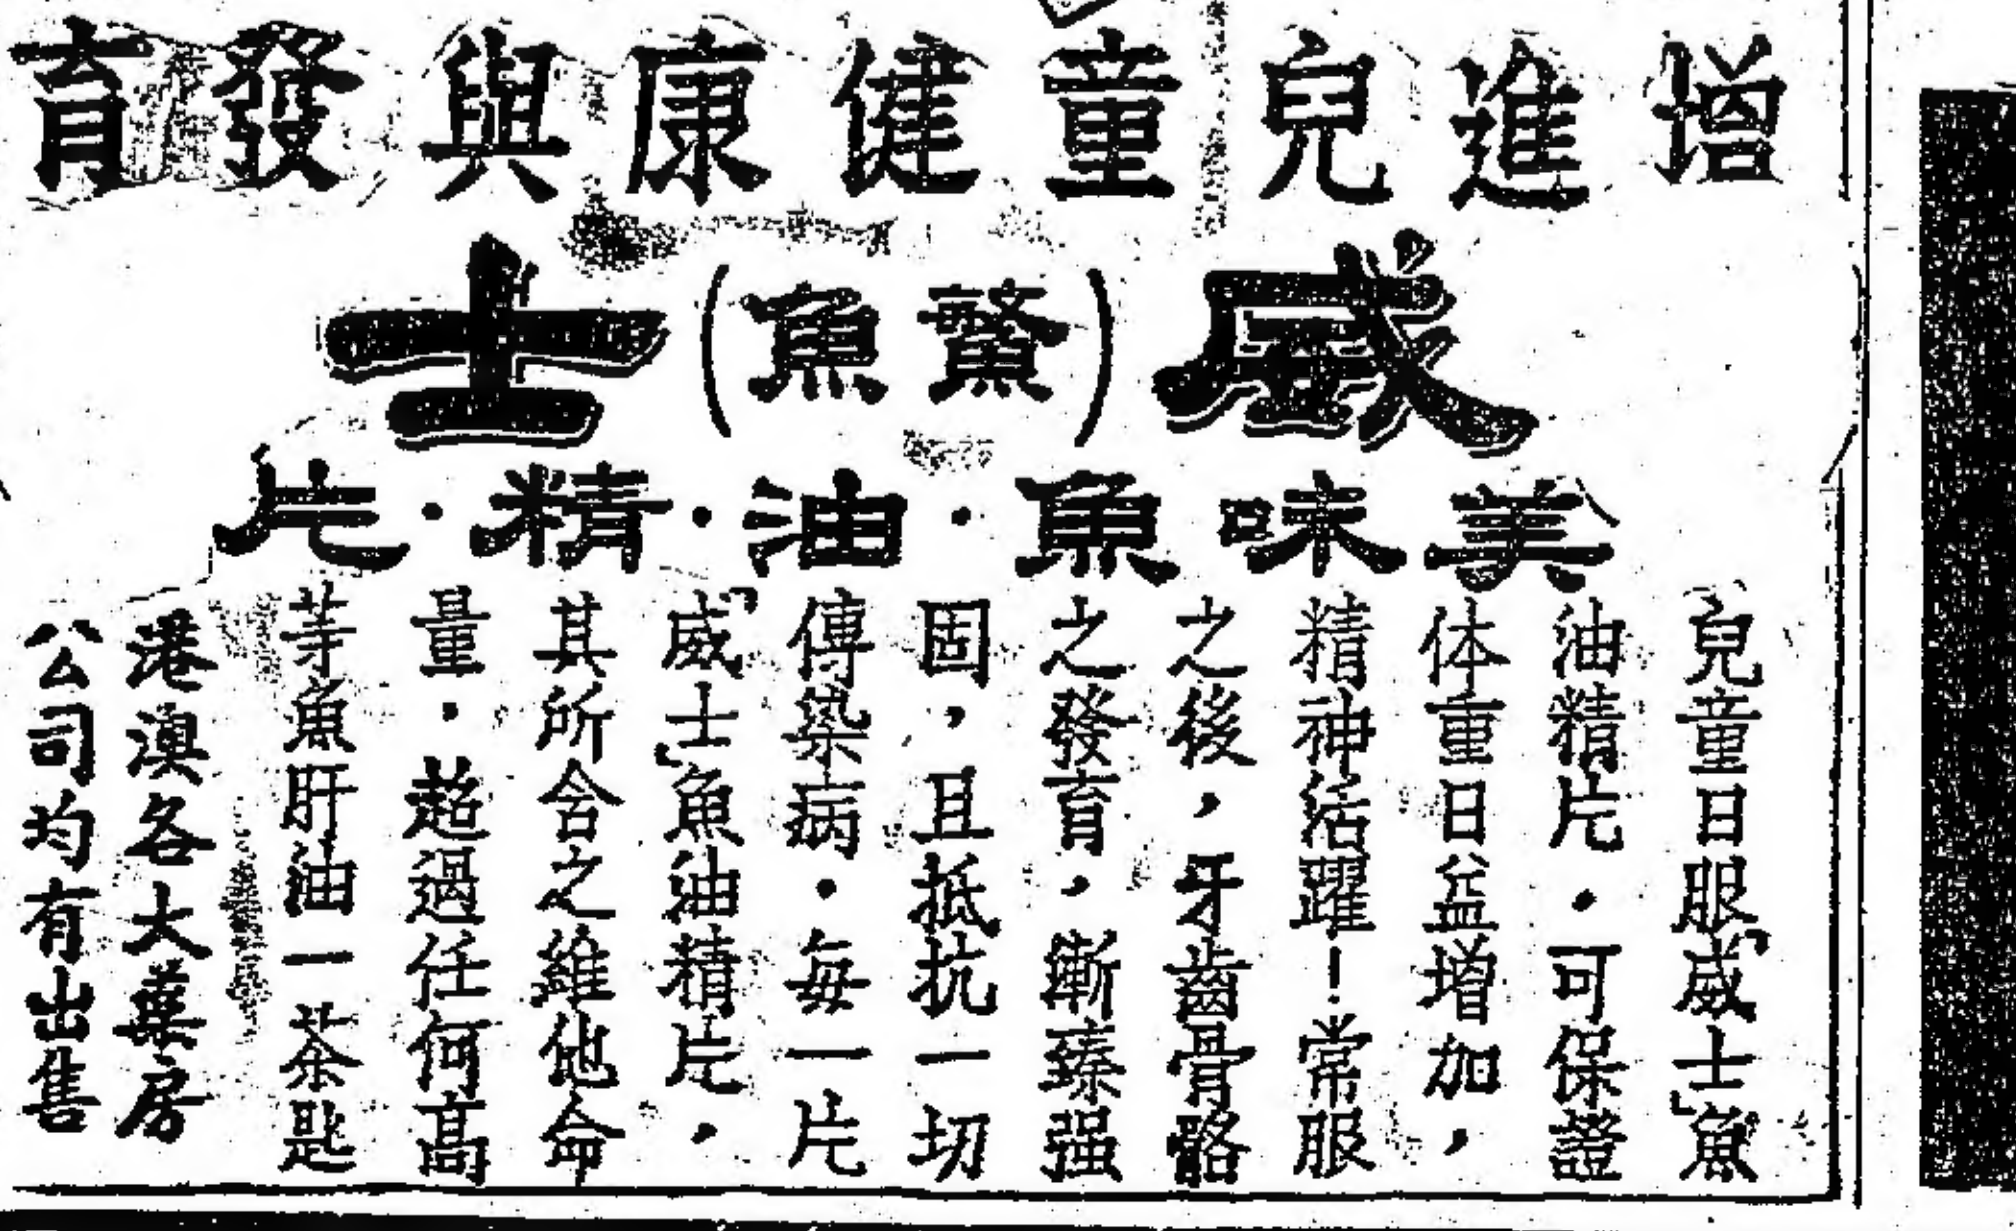 增進兒童健康與發育
威(鰵魚)士
美味魚·油·精·片
兒童日服「威士」魚
油精片·可保證
体重日益增加,
精神活躍!常服
之後,牙齒骨骼
之發育,漸臻强
固,且抵抗一切
傳染病·每一片
「威士」魚油精片,
其所含之維他命
量·超過任何高
等魚肝油一茶匙
港澳各大藥房
公司均有出售